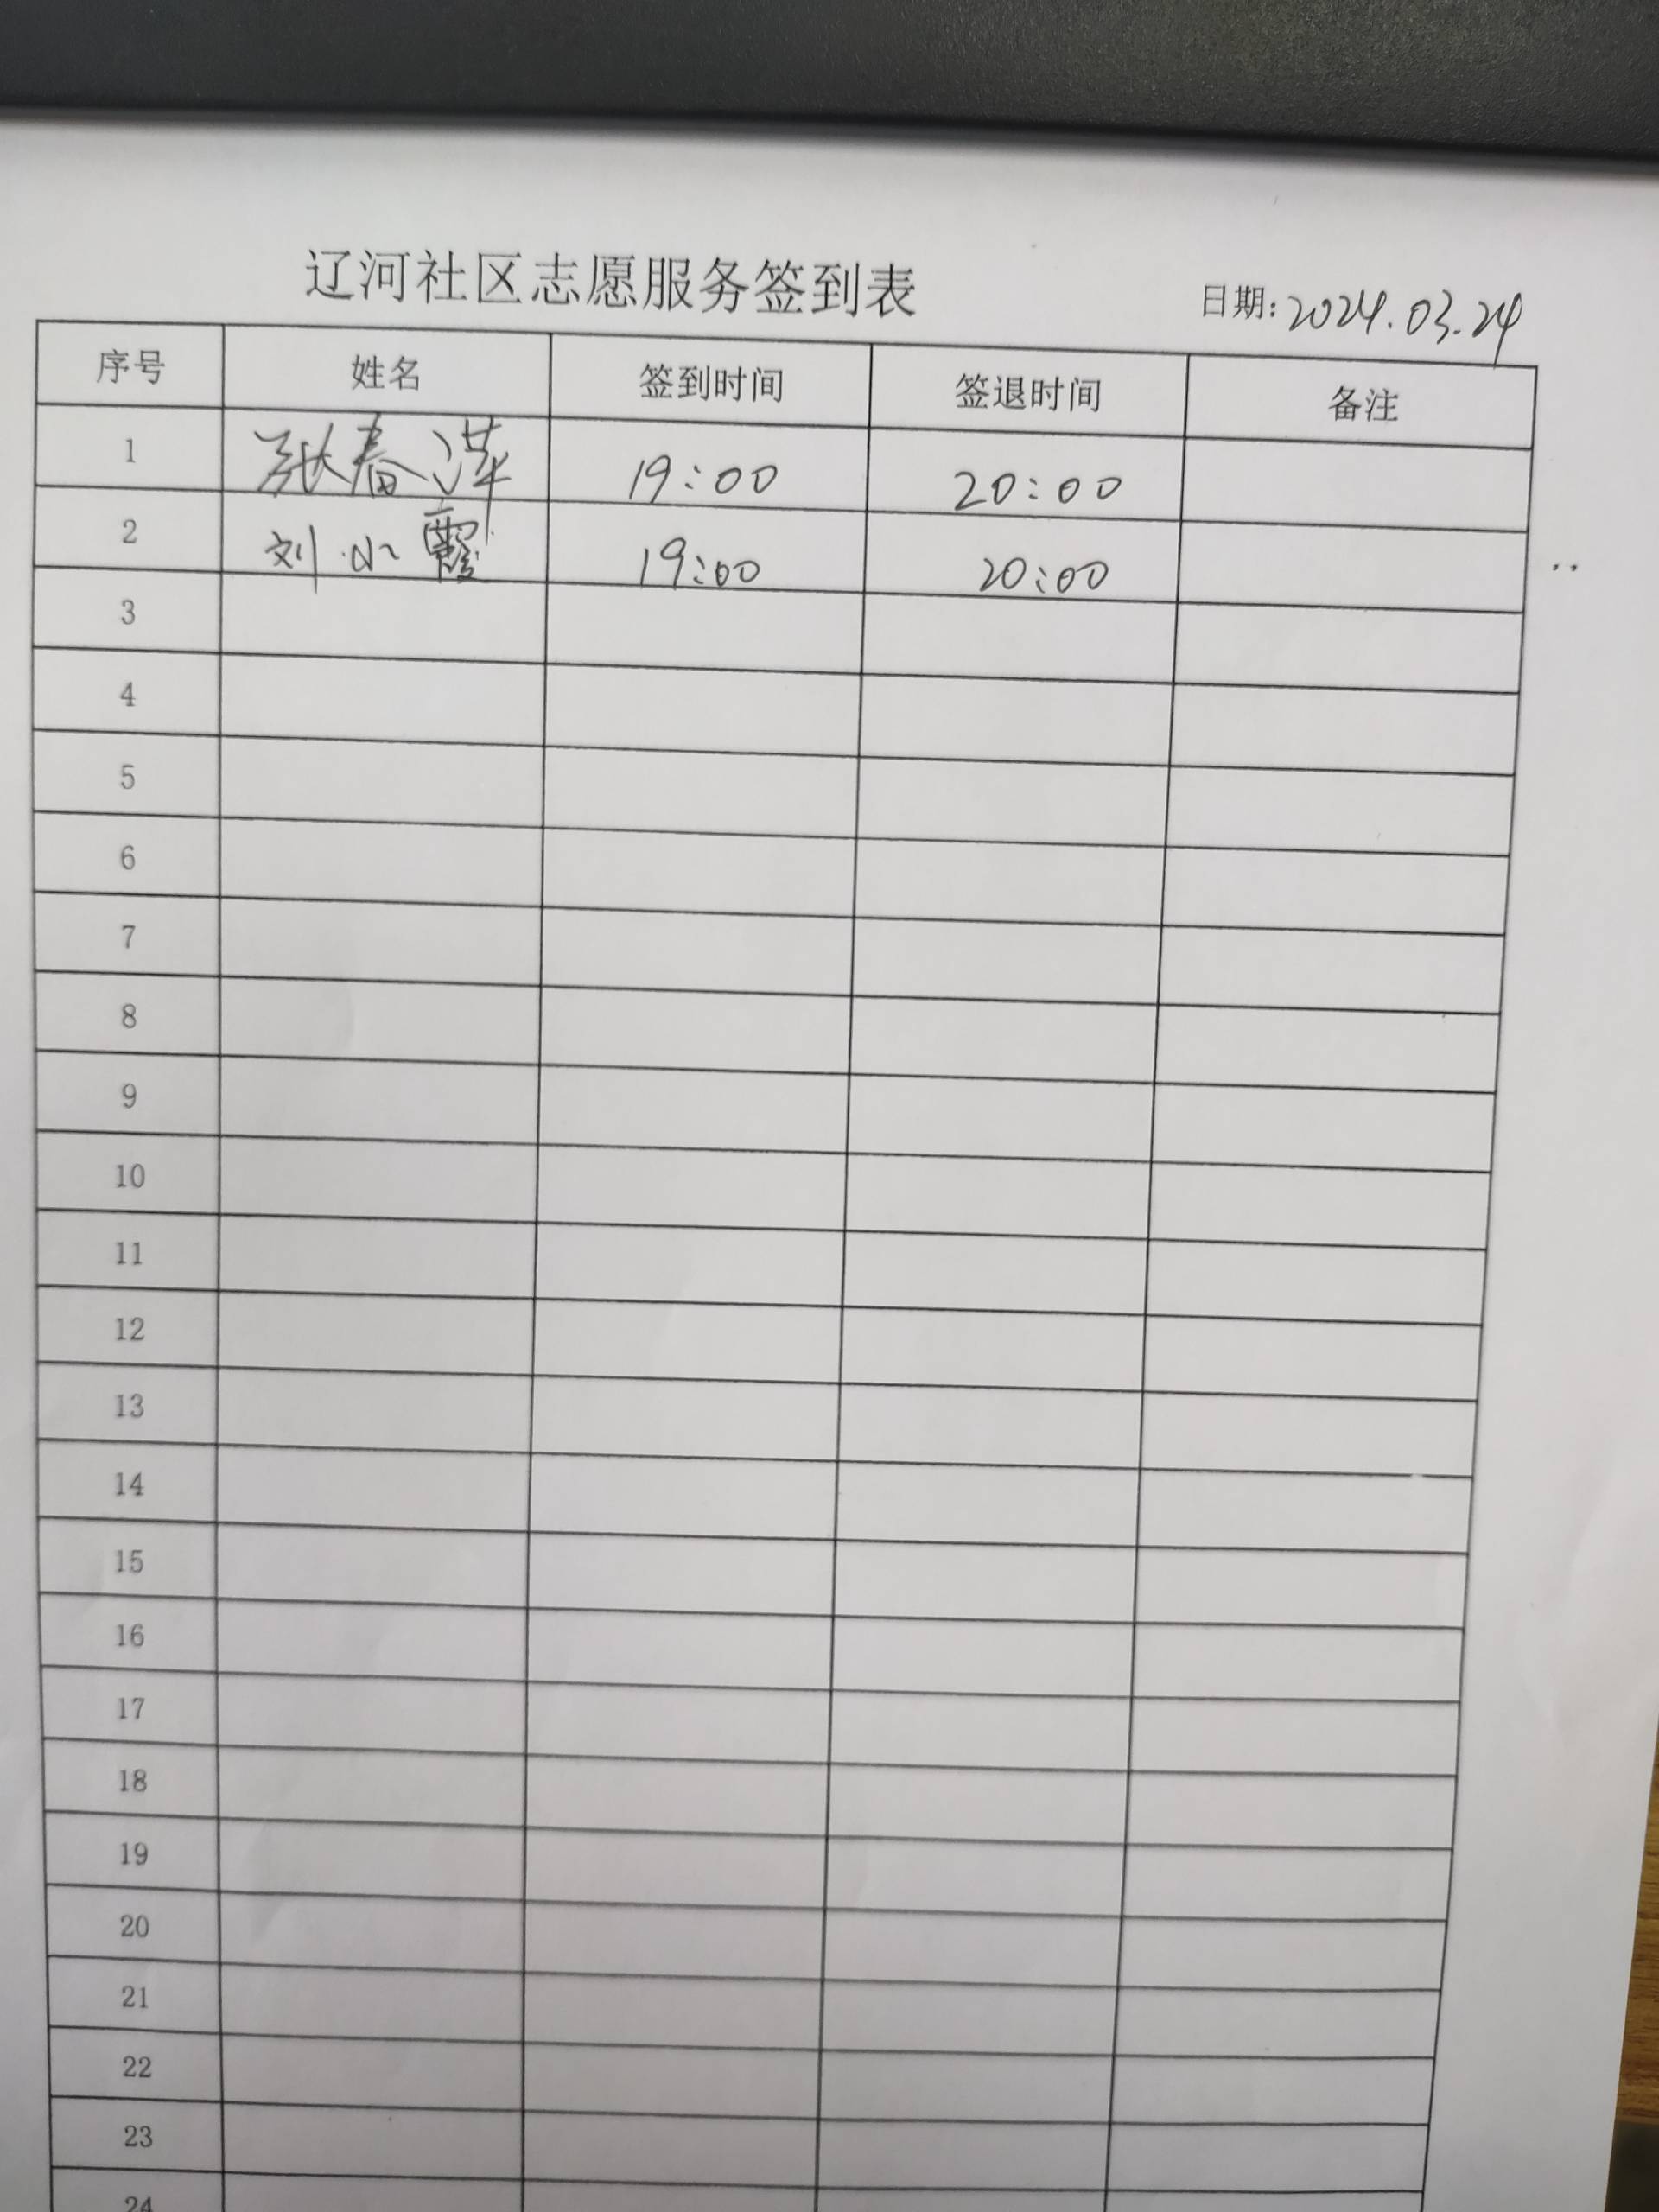 辽河社区志愿服务签到表 日期:2024.03.24
序号 姓名 签到时间 签退时间 备注
1 张春洋 19:00 20:00
2 刘小霞 19:00 20:00
3
4
5
6
7
8
9
10
11
12
13
14
15
16
17
18
19
20
21
22
23
24